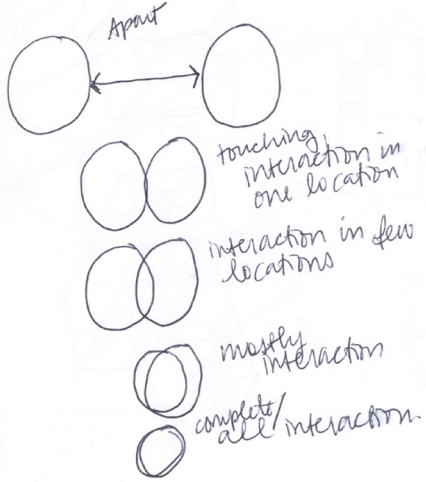 Apart
touching,
interaction in
one location
interaction in few
locations
mostly
interaction
complete/
all interaction.